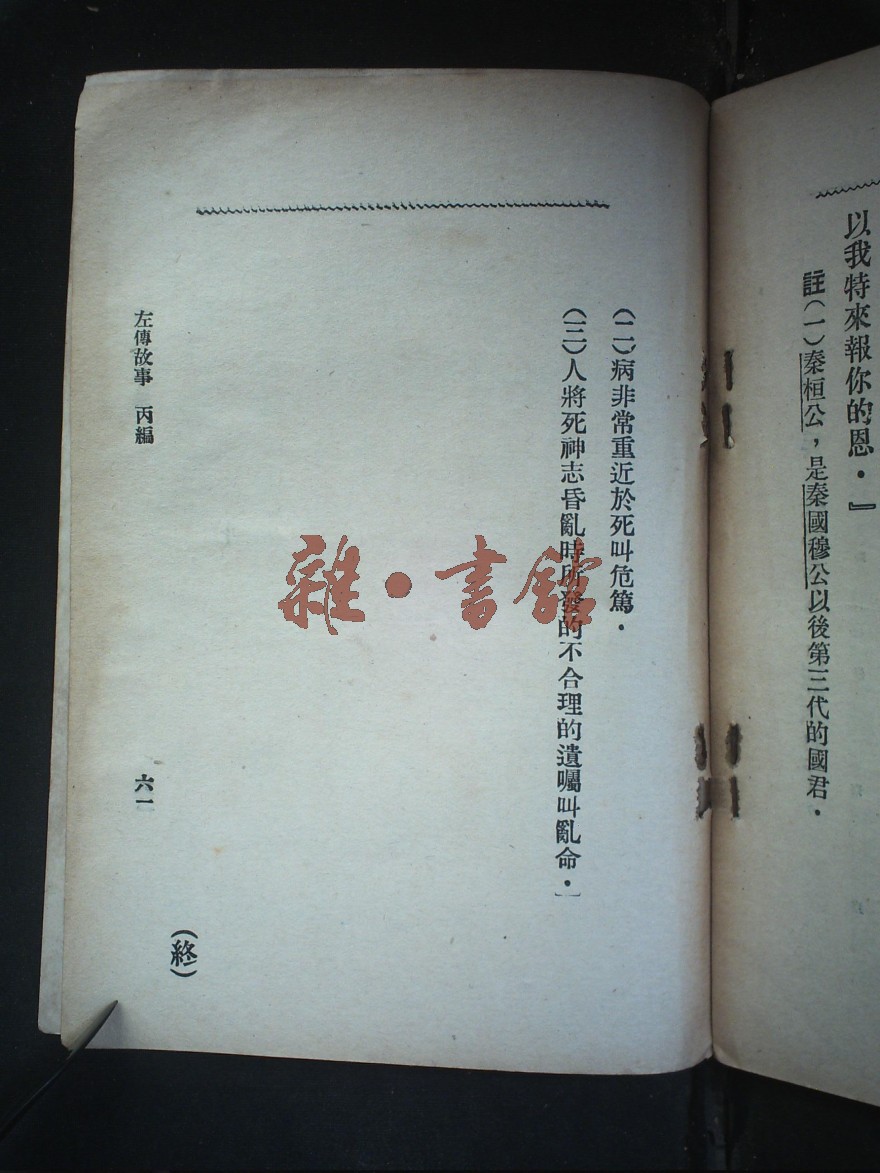 以我特來報你的恩．』
註(一)秦桓公，是秦國穆公以後第三代的國君．
(二)病非常重近於死叫危篤．
(三)人將死神志昏亂時所發的不合理的遺囑叫亂命．〕
(終)
左傳故事　丙編　六一
雜・書館